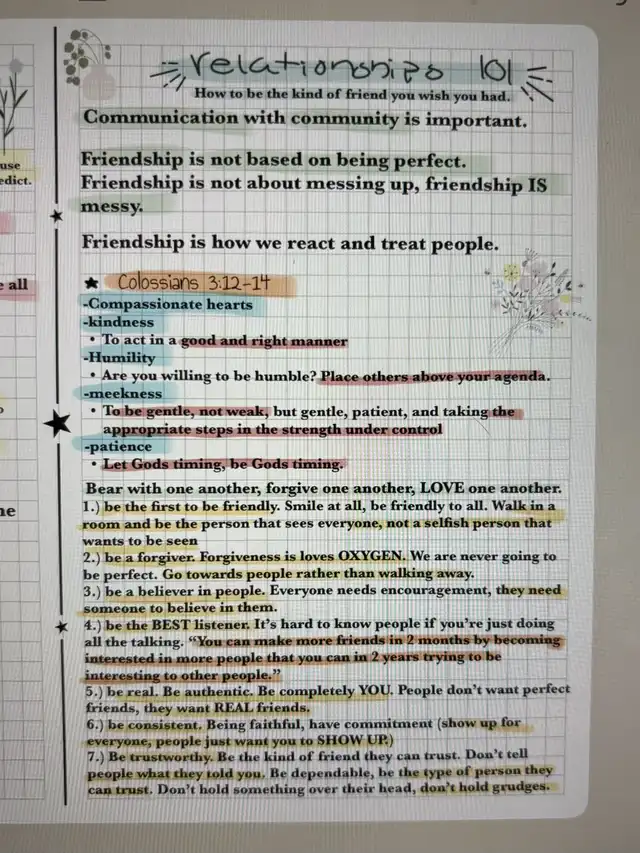 relationships 101
How to be the kind of friend you wish you had.
Communication with community is important.
Friendship is not based on being perfect.
Friendship is not about messing up, friendship IS
messy.
Friendship is how we react and treat people.
Colossians 3:12-14
-Compassionate hearts
-kindness
• To act in a good and right manner
-Humility
• Are you willing to be humble? Place others above your agenda.
-meekness
• To be gentle, not weak, but gentle, patient, and taking the
appropriate steps in the strength under control
-patience
• Let Gods timing, be Gods timing.
Bear with one another, forgive one another, LOVE one another.
1.) be the first to be friendly. Smile at all, be friendly to all. Walk in a
room and be the person that sees everyone, not a selfish person that
wants to be seen
2.) be a forgiver. Forgiveness is loves OXYGEN. We are never going to
be perfect. Go towards people rather than walking away.
3.) be a believer in people. Everyone needs encouragement, they need
someone to believe in them.
4.) be the BEST listener. It's hard to know people if you're just doing
all the talking. "You can make more friends in 2 months by becoming
interested in more people that you can in 2 years trying to be
interesting to other people."
5.) be real. Be authentic. Be completely YOU. People don't want perfect
friends, they want REAL friends.
6.) be consistent. Being faithful, have commitment (show up for
everyone, people just want you to SHOW UP.)
7.) Be trustworthy. Be the kind of friend they can trust. Don't tell
people what they told you. Be dependable, be the type of person they
can trust. Don't hold something over their head, don't hold grudges.